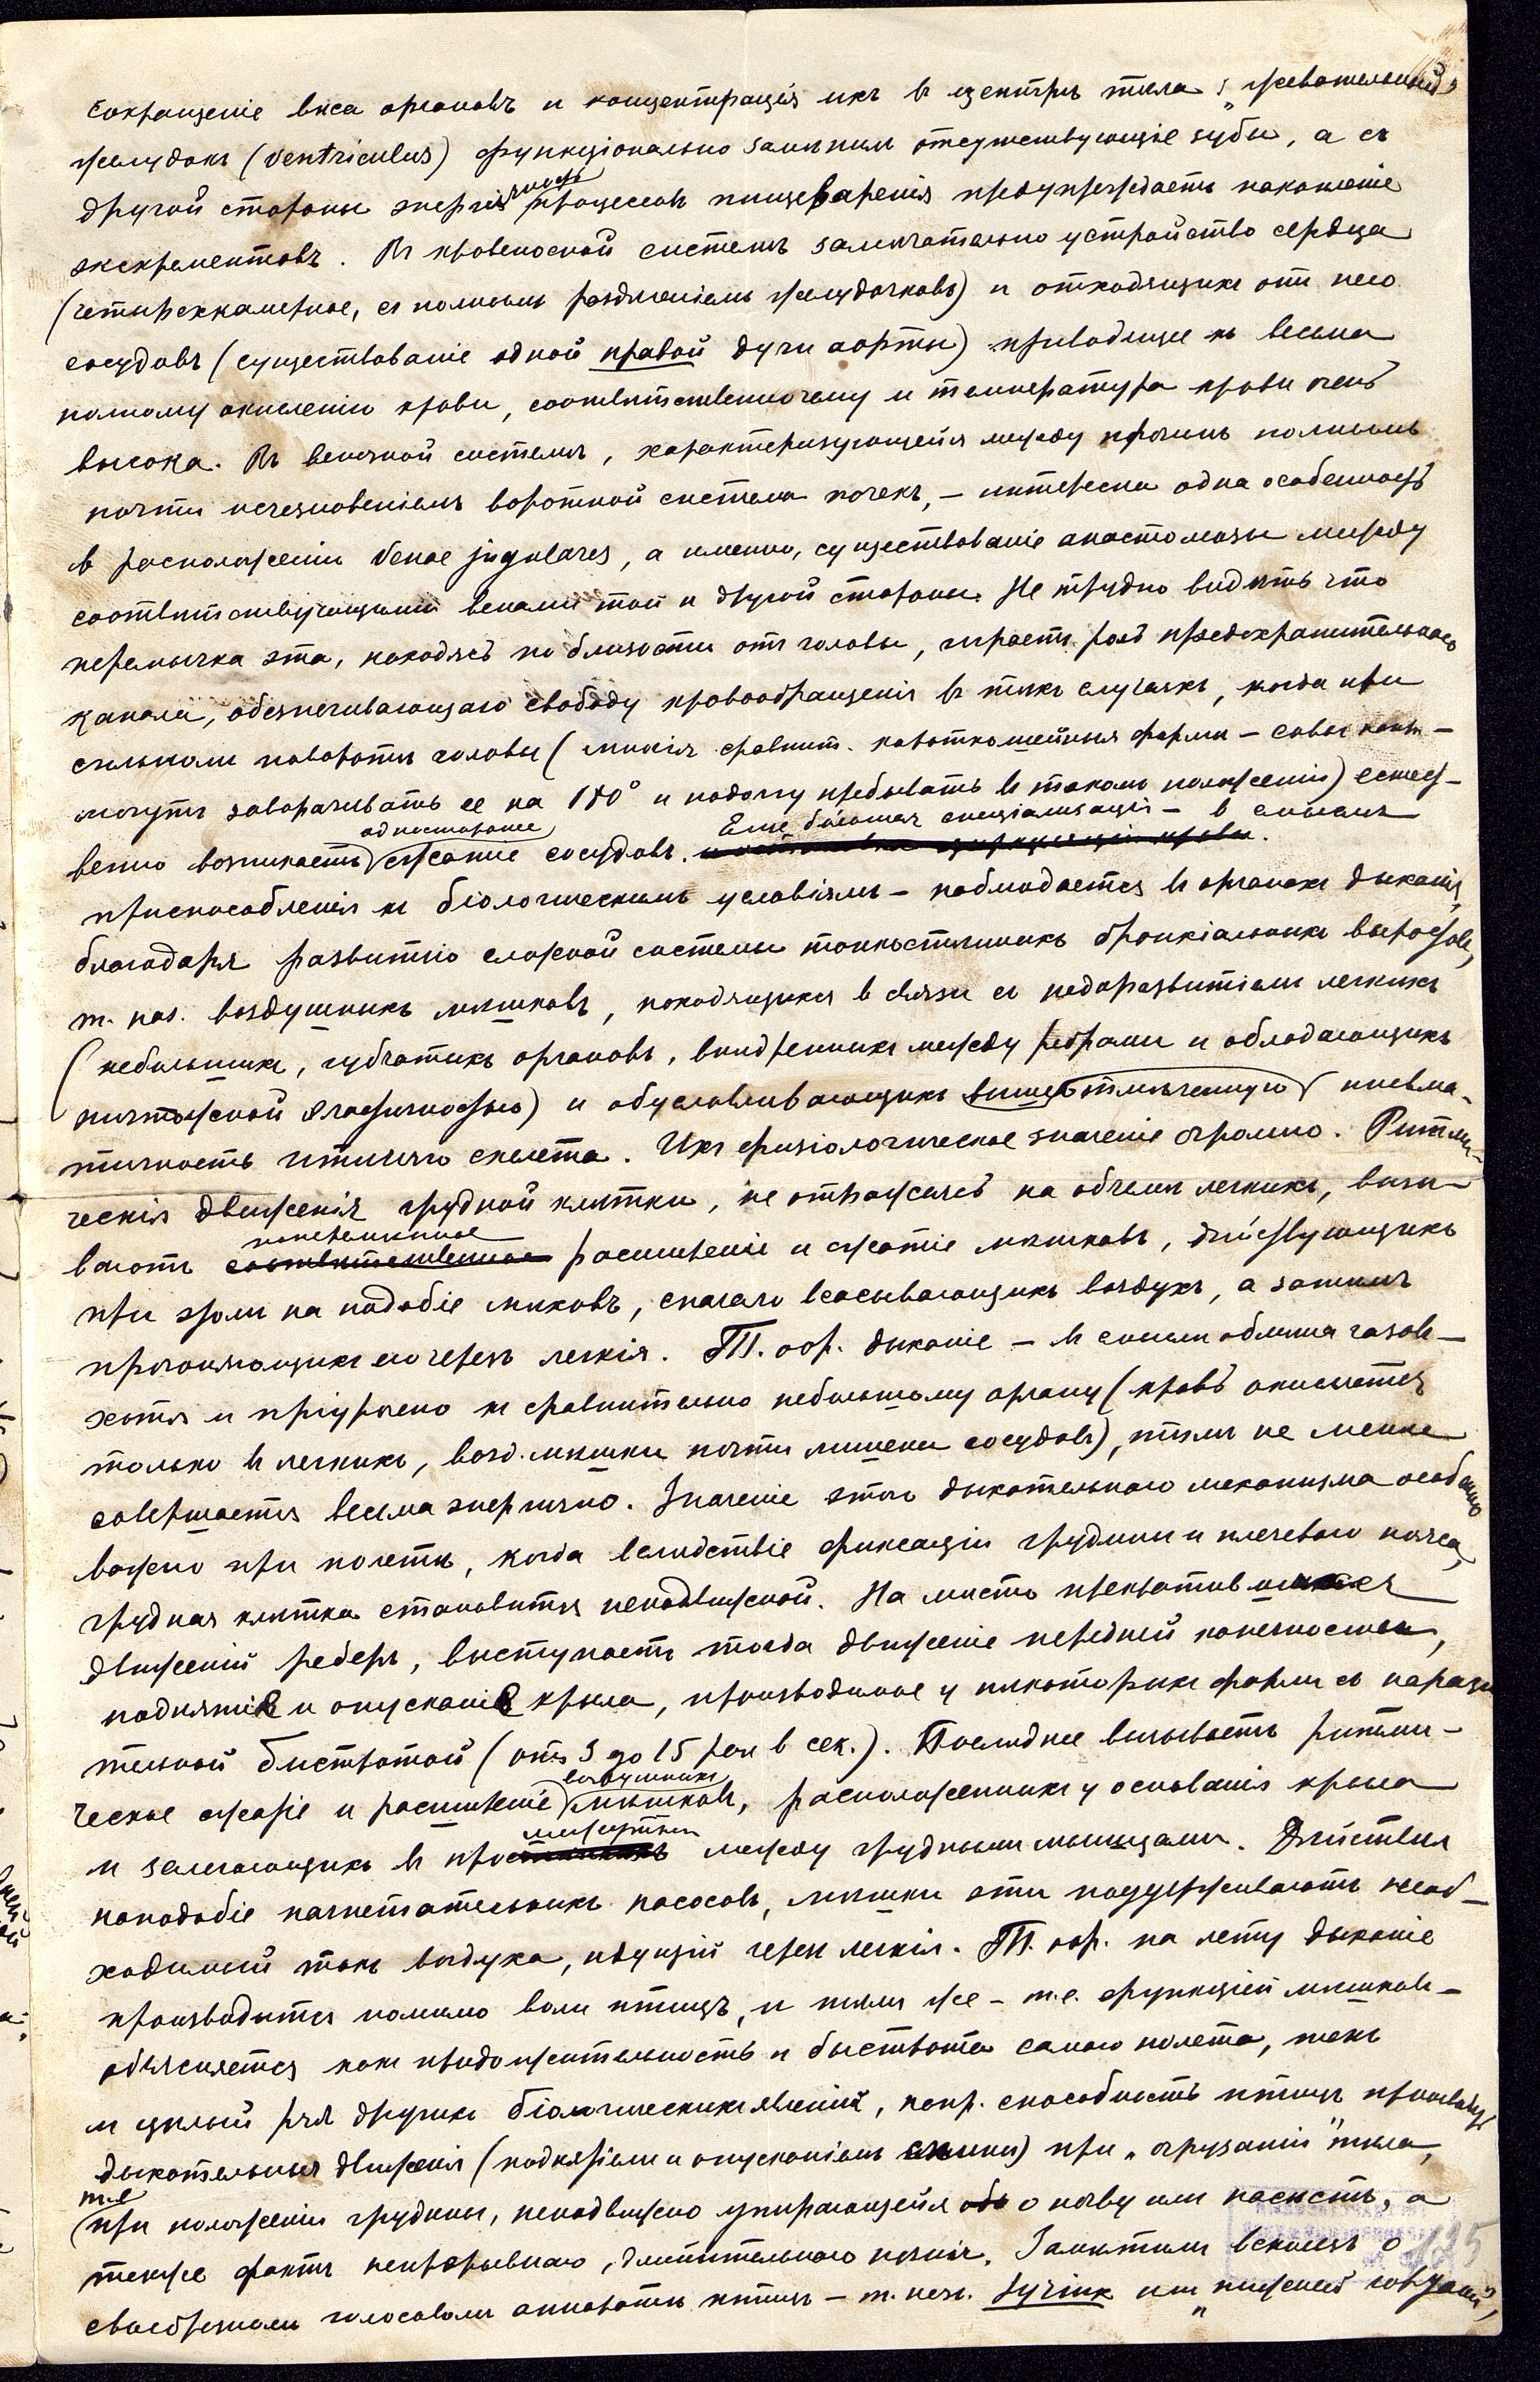 сокращеніе вѣса органовъ и концентрація ихъ въ центрѣ тѣла: „жевательный"
желудокъ (ventriculus) функціонально замѣнилъ отсутствующіе зубы, а съ
другой стороны энергичность процессовъ пищеваренія предупреждаетъ накопленіе
экскрементовъ. Въ кровеносной системѣ замѣчательно устройство сердца
(четырехкамерное, съ полнымъ раздѣленіемъ желудочковъ) и отходящихъ отъ него
сосудовъ (существованіе одной правой дуги аорты) приводящее къ весьма
полному окисленію крови, соотвѣтственно чему и температура крови очень
высока. Въ венозной системѣ, характеризующейся между прочимъ полнымъ
почти исчезновеніемъ воротной системы почекъ, – интересна одна особенность
въ расположеніи venae jugulares, а именно, существованіе анастомозы между
соотвѣтствующими венами той и другой стороны. Не трудно видѣть что
перемычка эта, находясь по близости отъ головы, играетъ роль предохранительного
канала, обезпечивающаго свободу кровообращенія въ тѣхъ случаяхъ, когда при
сильномъ поворотѣ головы (многія сравнит. короткошейныя формы – совы напр. –
могутъ заворачивать ее на 180° и подолгу пребывать въ такомъ положеніи) естест-
венно возникаетъ одностороннее сжатіе сосудовъ. Еще большая спеціализація – в смыслѣ
приспособленія къ біологическимъ условіямъ – наблюдается въ органахъ дыханія,
благодаря развитію сложной системы тонкостѣнныхъ бронхіальныхъ выростовъ,
т. наз. воздушныхъ мѣшковъ, находящихся в связи съ недоразвитіемъ легкихъ
(небольшихъ, губчатыхъ органовъ, внѣдренныхъ между ребрами и обладающихъ
ничтожной эластичностью) и обусловливающихъ вышеотмѣченную пневма-
тичность птичьяго скелета. Ихъ физіологическое значеніе огромно. Ритми-
ческія движенія грудной клѣтки, не отражаясь на объемѣ легкихъ, вызы-
ваютъ поперемѣнное расширеніе и сжатіе мѣшковъ, дѣйствующихъ
при этомъ на подобіе мѣховъ, сначала всасывающихъ воздухъ, а затѣмъ
прогоняющихъ его черезъ легкія. Т. обр. дыханіе – въ смыслѣ обмѣна газовъ –
хотя и пріурочено къ сравнительно небольшому органу (кровь окисляется
только въ легкихъ, возд. мѣшки почти лишены сосудовъ), тѣмъ не менѣе
совершается весьма энергично. Значеніе этого дыхательнаго механизма особенно
важно при полетѣ, когда вслѣдствіе фиксаціи грудины и плечеваго пояса,
грудная клѣтка становится неподвижной. На мѣсто прекратившихся
движеній реберъ, выступаетъ тогда движеніе передней конечности,
поднятіе и опусканіе крыла, производимое у нѣкоторыхъ формъ съ порази
тельной быстротой (отъ 3 до 15 раз в сек.). Послѣднее вызываетъ ритми-
ческое сжатіе и расширеніе воздушныхъ мѣшковъ, расположенныхъ у основанія крыла
и залегающихъ въ промежуткѣ между грудными мышцами. Дѣйствуя
наподобіе нагнетательныхъ насосовъ, мѣшки эти поддерживаютъ необ-
ходимый токъ воздуха, идущій черезъ легкія. Т. обр. на лету дыханіе
производится помимо воли птицъ, и тѣмъ же – т.е. функціей мѣшковъ –
объясняется какъ продолжительность и быстрота самаго полета, такъ
и цѣлый рядъ другихъ біологическихъ явленій, напр. способность птицъ производ.
дыхательныя движенія (поднятіемъ и опусканіемъ спины) при „огрузаніи" тѣла,
т.е при положеніи грудины, неподвижно упирающейся о почву или насѣстъ, а
также фактъ непрерывнаго, длительнаго пѣнія. Замѣтимъ вскользь о
своебразномъ голосовомъ аппаратѣ птицъ – т. наз. Syrinx или „нижней гортани",